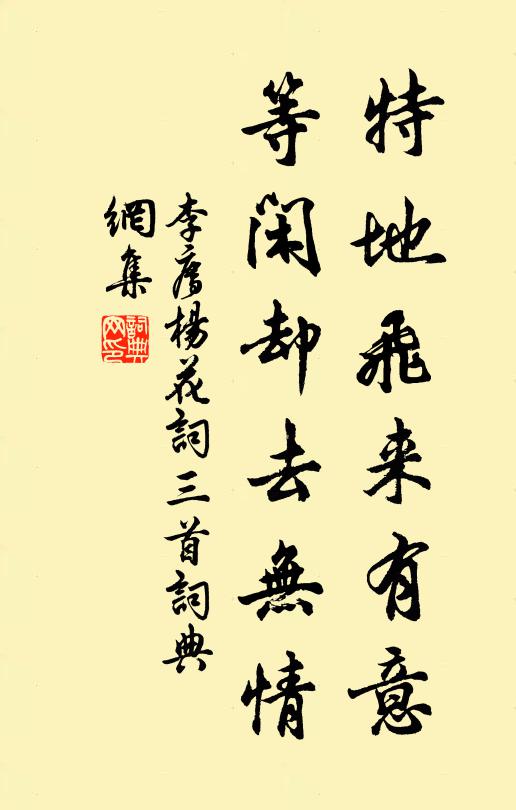 特地飛来有意
等閑却去無情
李廌楊花詞三首詞典
網集
詞典網印